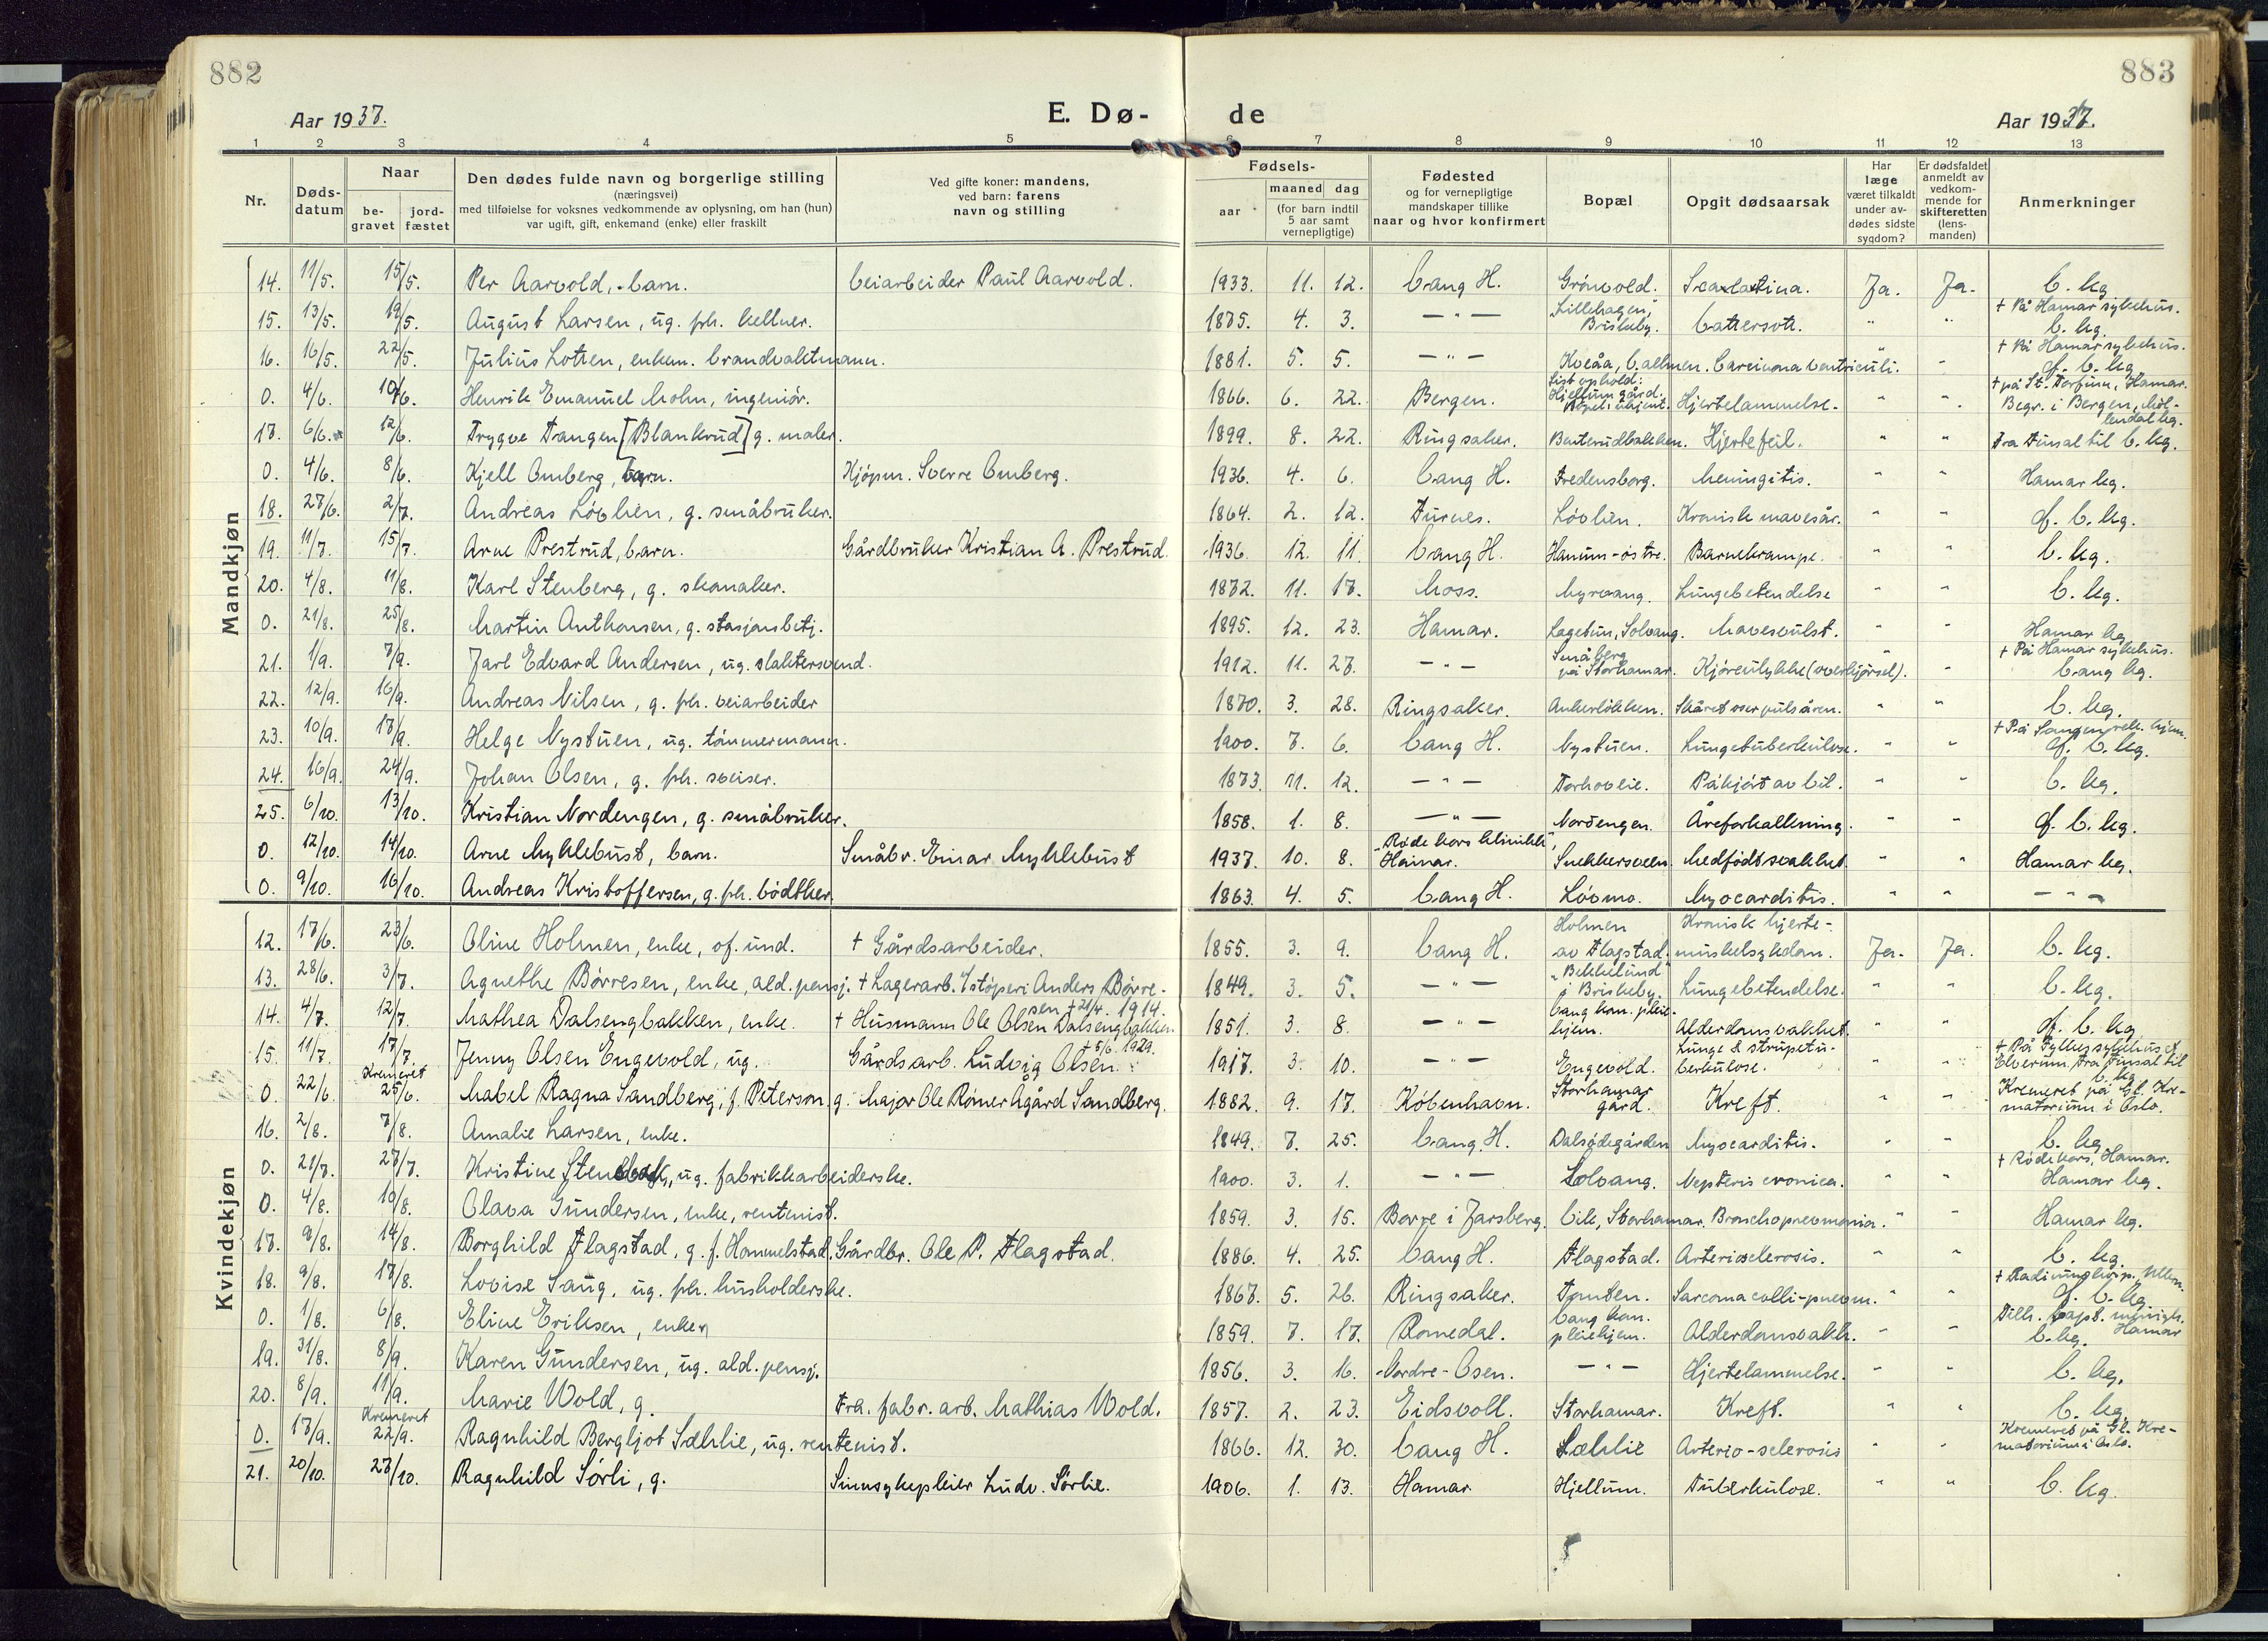 882
883
Aar 1937.
E. Dø-
de
Aar 1937.
1 2 3 4 5 6 7 8 9 10 11 12 13
Nr.
Døds-
datum
Naar
be-
gravet
jord-
fæstet
Den dødes fulde navn og borgerlige stilling
(næringsvei)
med tilføielse for voksnes vedkommende av oplysning, om han (hun)
var ugift, gift, enkemand (enke) eller fraskilt
Ved gifte koner: mandens,
ved barn: farens
navn og stilling
Fødsels-
aar
maaned dag
(for barn indtil
5 aar samt
vernepligtige)
Fødested
og for vernepligtige
mandskaper tillike
naar og hvor konfirmert
Bopæl
Opgit dødsaarsak
Har
læge
været tilkaldt
under av-
dødes sidste
sygdom?
Er dødsfaldet
anmeldt av
vedkom-
mende for
skifteretten
(lens-
manden)
Anmerkninger
Mandkjøn
14. 11/5. 15/5. Per Aarvold, barn. Veiarbeider Paul Aarvold. 1933. 11. 12. Vang H. Grønvold. Scarlatina. Ja. Ja. V. kg.
15. 13/5. 19/5. August Larsen, ug. fh. kellner. 1875. 4. 3. —"— Lillehagen, Briskeby. " " + På Hamar sykehus. V. kg.
16. 16/5. 22/5. Julius Lotten, enkem. brandvaktmann. 1881. 5. 5. —"— Kvåa, Vallmen. Carcinoma ventriculi. " " + På Hamar sykehus. V. kg.
0. 4/6. 10/6. Henrik Emanuel Mohn, ingeniør. 1866. 6. 22. Bergen. Sist ophold: Hjellum gård. Hjertelammelse. " " + på St. Torfinn, Hamar. Begr. i Bergen, Møllendal kg.
17. 6/6. 12/6. Trygve Tangen [Blankrud] g. maler. 1899. 8. 22. Ringsaker. Benterudbakken. Hjertefeil. " " Fra Furusal til V. kg.
0. 4/6. 8/6. Kjell Omberg, barn. Kjøpm. Sverre Omberg. 1936. 4. 6. Vang H. Fredensborg. Meningitis. " " Hamar kg.
18. 27/6. 2/7. Andreas Løvlien, g. småbruker. 1864. 2. 12. Furnes. Løvlien. Kronisk mavesår. " " Ø. V. kg.
19. 11/7. 15/7. Arne Prestrud, barn. Gårdbruker Kristian A. Prestrud. 1936. 12. 11. Vang H. Hanum-østre. Barnekrampe. " " V. kg.
20. 4/8. 11/8. Karl Stenberg, g. skomaker. 1872. 11. 17. Moss. Myrvang. Lungebetendelse " " V. kg.
0. 21/8. 25/8. Martin Anthonsen, g. stasjonsbetj. 1895. 12. 23. Hamar. Lagetun, Solvang. Mavesvulst. " " Hamar kg.
21. 1/9. 7/9. Jarl Edvard Andersen, ug. slaktersvend. 1912. 11. 27. —"— Småberg på Storhamar. Kjøreulykke (overkjørsel). " " + På Hamar sykehus. Vang kg.
22. 12/9. 16/9. Andreas Nilsen, g. fh. veiarbeider 1870. 3. 28. Ringsaker. Ankerløkken. Skåret over pulsåren. " " V. kg.
23. 10/9. 17/9. Helge Nystuen, ug. tømmermann. 1900. 7. 6. Vang H. Nystuen. Lungetuberkulose. " " + På Sangen rek. hjem. Ø. V. kg.
24. 16/9. 24/9. Johan Olsen, g. fh. sveiser. 1873. 11. 12. —"— Torhovlie. Påkjørt av bil. " " V. kg.
25. 6/10. 13/10. Kristian Nordengen, g. småbruker. 1858. 1. 8. —"— Nordengen. Åreforkalkning. " " Ø. V. kg.
0. 12/10. 14/10. Arne Myklebust, barn. Småbr. Einar Myklebust 1937. 10. 8. "Røde kors klinikk", Hamar. Snekkersveen Medfødt svakhet " " Hamar kg.
0. 9/10. 16/10. Andreas Kristoffersen, g. fh. bødtker. 1863. 4. 5. Vang H. Løvmo. Myocarditis. " " —"—
Kvindekjøn
12. 17/6. 23/6. Oline Holmen, enke, of. und. + Gårdsarbeider. 1855. 3. 9. Vang H. Holmen av Flagstad. Kronisk hjerte-muskelsykdom. Ja. Ja. V. kg.
13. 28/6. 3/7. Agnethe Børresen, enke, ald. pensj. + Lagerarb. i støperi Anders Børresen + 21/4. 1914. 1849. 3. 5. —"— "Bekkelund" i Briskeby. Lungebetendelse. " " V. kg.
14. 4/7. 12/7. Mathea Dalsengbakken, enke. + Husmann Ole Olsen Dalsengbakken + 5/6. 1929. 1851. 3. 8. —"— Vang kom. pleiehjem. Alderdomsvakhet. " " Ø. V. kg.
15. 11/7. 17/7. Jenny Olsen Engevold, ug. Gårdsarb. Ludvig Olsen. 1917. 3. 10. —"— Engevold. Lunge & strupetuberkulose. + På Fylkessykehuset Elverum. Fra Furusal til V. kg.
0. 22/6 Kremeret 25/6. Mabel Ragna Sandberg, f. Peterson, g. Major Ole Rømer Aagård Sandberg. 1882. 9. 17. København. Storhamar gård. Kreft. " " Kremeret på Gl. Krematorium i Oslo.
16. 2/8. 7/8. Amalie Larsen, enke. 1849. 7. 25. Vang H. Dalsødegården Myocarditis. " " V. kg.
0. 21/7. 27/7. Kristine ug. fabrikkarbeiderske. 1900. 3. 1. —"— Solvang. Nepteris cronica. " " + Røde kors, Hamar. Hamar kg.
0. 4/8. 10/8. Olava Gundersen, enke, rentenist. 1859. 3. 15. Borre i Jarsberg. Vik, Storhamar. Bronchopneomonia. " " Hamar kg.
17. 9/8. 14/8. Borghild Flagstad, g. f. Hommelstad. Gårdbr. Ole P. Flagstad. 1886. 4. 25. Vang H. Flagstad. Arteriosclerosis. " " V. kg.
18. 9/8. 17/8. Lovise Saug, ug. fh. husholderske. 1867. 5. 26. Ringsaker. Tomten. Sarcoma colli-pneum. " " + Radiumshosp. Ullern. Ø. V. kg.
0. 1/8. 6/8. Eline Eriksen, enke. 1859. 7. 17. Romedal. Vang kom. pleiehjem. Alderdomsvakh. " " Tilh. bapt. menigh. Hamar
19. 31/8. 8/9. Karen Gundersen, ug. ald. pensj. 1856. 3. 16. Nordre-Osen. —"— Hjertelammelse. " " V. kg.
20. 8/9. 11/9. Marie Wold, g. Fra. fabr. arb. Mathias Wold. 1857. 2. 23. Eidsvoll. Storhamar. Kreft. " " V. kg.
0. 17/9. Kremeret 22/9. Ragnhild Bergljot Sæhlie, ug. rentenist. 1866. 12. 30. Vang H. Sæhlie Arterio-sclerosis " " Kremeret på Gl. Krematorium i Oslo.
21. 20/10. 27/10. Ragnhild Sørli, g. Sinnsykepleier Ludv. Sørlie. 1906. 1. 13. Hamar Hjellum. Tuberkulose. " " V. kg.